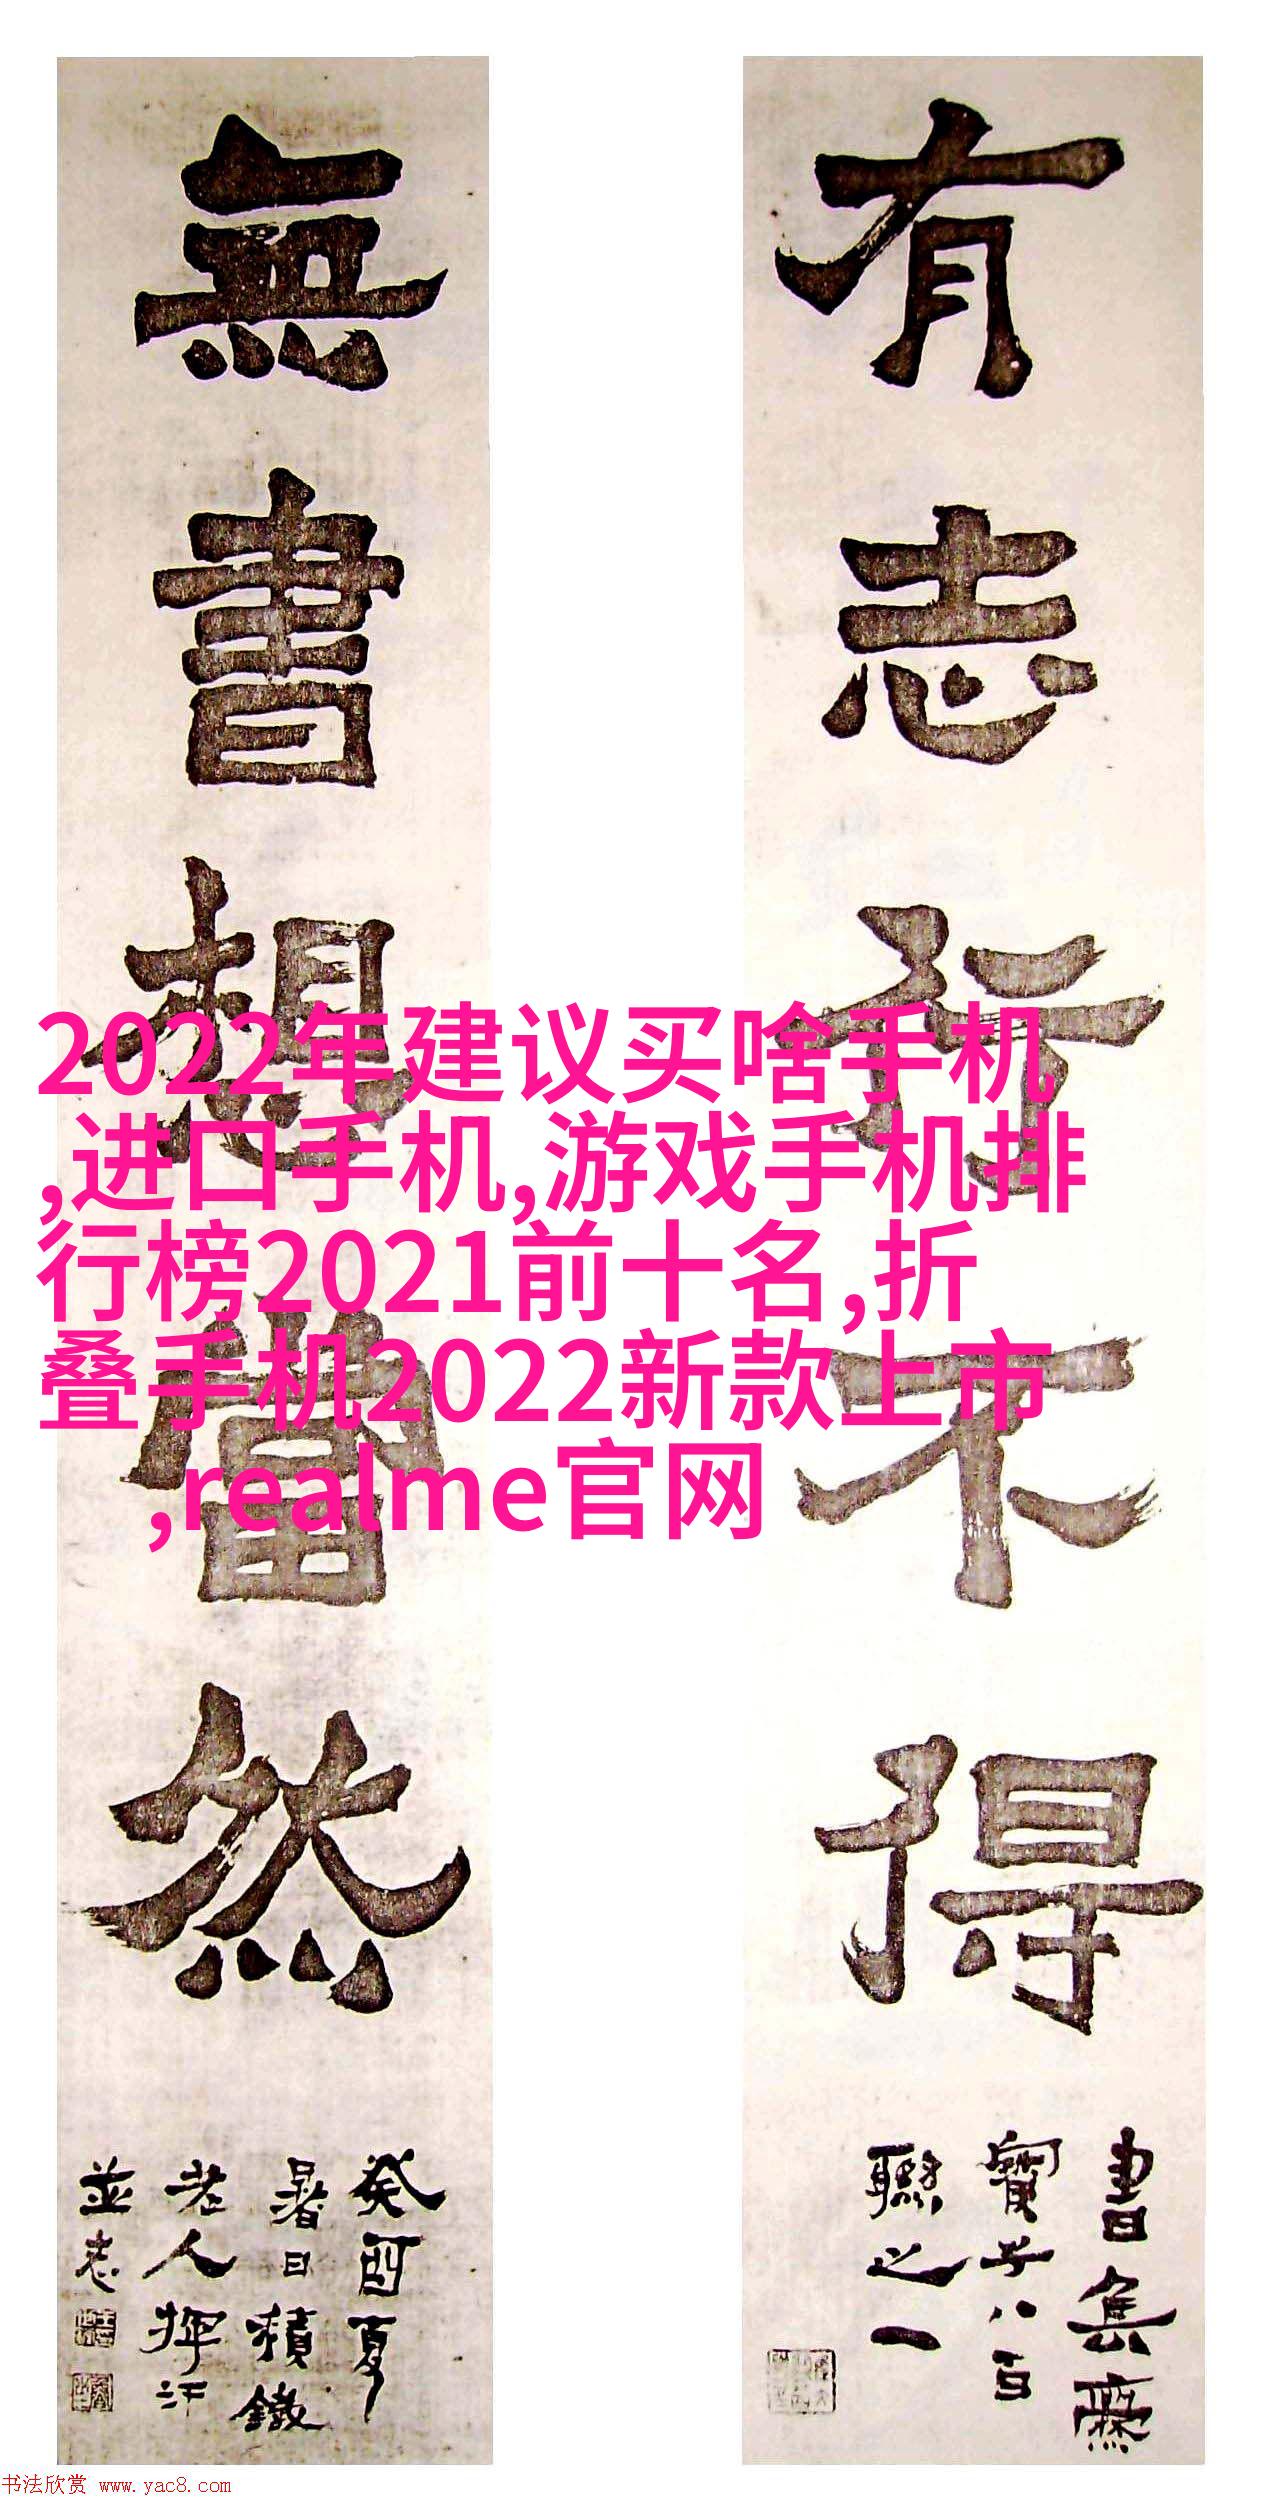 有志行不得
書集爨
寶子八百
聯之一
無書想當然
癸酉夏
暑日積鐵
老人揮汗
並志
2022年建议买啥手机
,进口手机,游戏手机排
行榜2021前十名,折
叠手机2022新款上市
,realme官网
书法欣赏 www.yac8.com